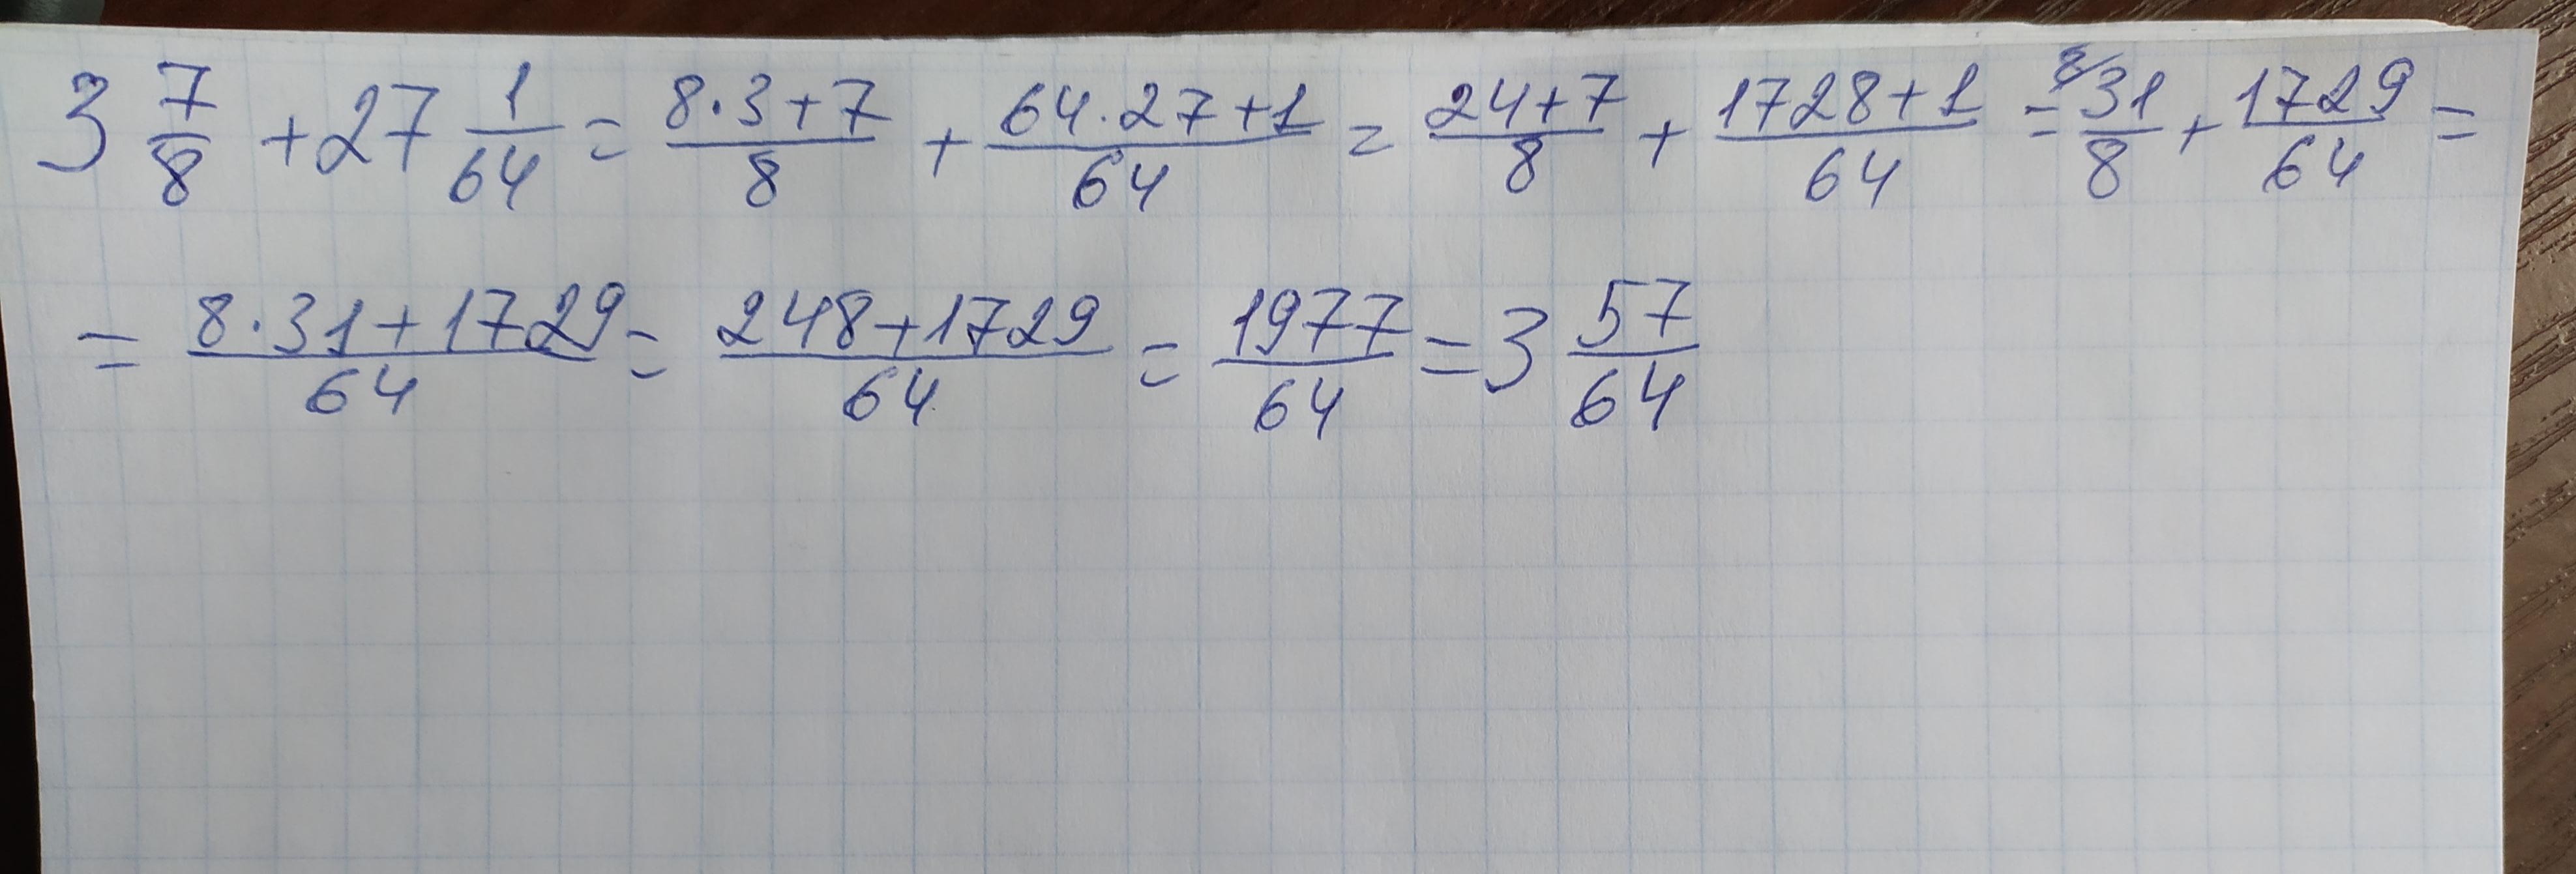 3 7/8 + 27 1/64 = (8·3+7)/8 + (64·27+1)/64 = (24+7)/8 + (1728+1)/64 = ⁸⁄31/8 + 1729/64 =
= (8·31+1729)/64 = (248+1729)/64 = 1977/64 = 3 57/64